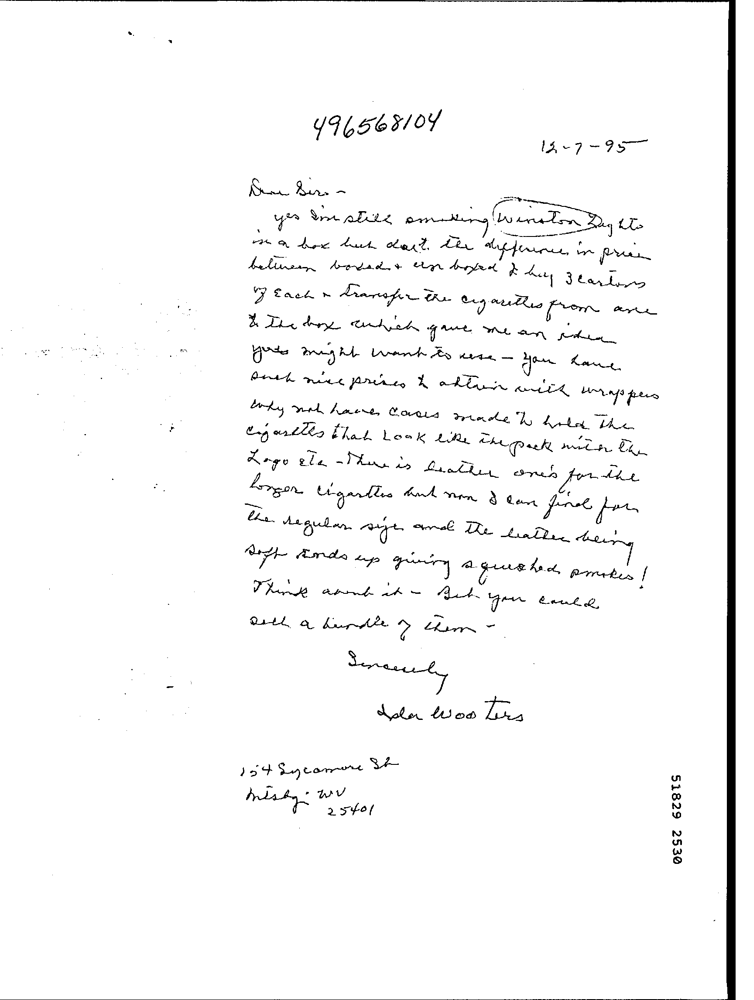 496568104
12-7-95
Dear Sirs -
yes I'm still smoking Winston Lights
in a box but the difference in price
between boxed + un boxed I buy 3 cartons
of each + transfer the cigarettes from one
to the box which gave me an idea
might want to use - you have
such nice prizes to obtain with wrappers
why not have cases made to hold the
cigarettes that Look like the pack with the
Logo etc - There is leather one's for the
longer cigarettes but non I can find for
the regular size and the leather being
soft ends up giving squashed smokes!
Think about it - Bet you could
sell a bundle of them -
Sincerely
Ida Wooters
154 Sycamore St
WV
25401
51829 2530